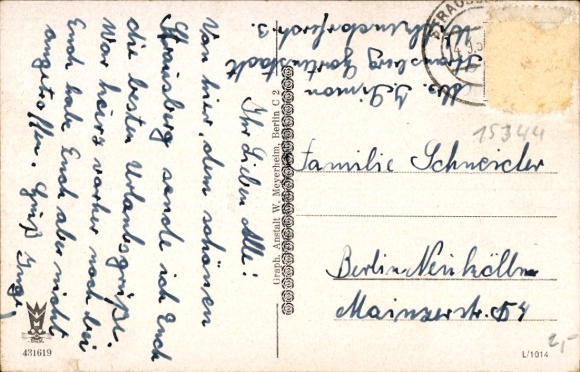 Ihr Lieben Alle!
Von hier, dem schönen
Strausberg sende ich Euch
die besten Urlaubsgrüße.
War heirs vorher noch bei
Euch habe Euch aber nicht
angetroffen. Gruß Inge
Abs. J. Simon
Strausberg Gartenstadt
3.
STRAUS
Graph. Anstalt W. Meyerheim, Berlin C 2
15344
Familie Schneider
Berlin-Neukölln
Mainzerstr. 54
2,-
431619
L/1014